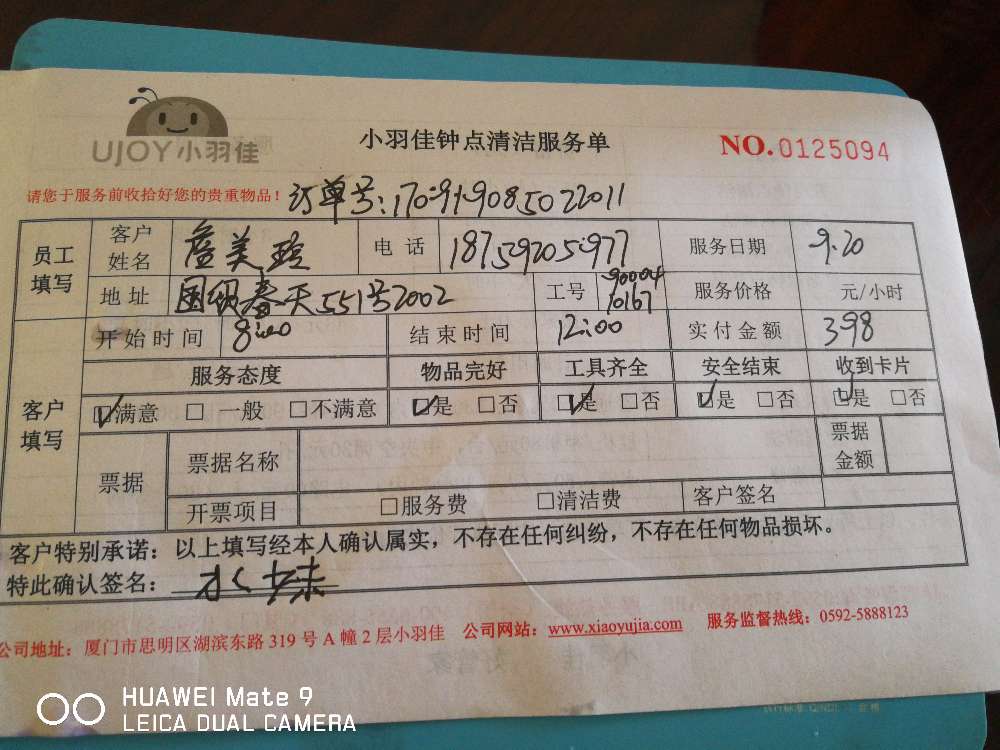 UJOY小羽佳
小羽佳钟点清洁服务单
NO.0125094
请您于服务前收拾好您的贵重物品！
订单号：
员工填写 客户姓名 詹美玲 电话 18759205977 服务日期 9.20
地址 国贸春天551号2002 工号 90004 10167 服务价格 元/小时
客户填写 开始时间 8:00 结束时间 12:00 实付金额 398
服务态度 物品完好 工具齐全 安全结束 收到卡片
☑满意 □一般 □不满意 ☑是 □否 ☑是 □否 ☑是 □否 ☑是 □否
票据 票据名称 票据金额
开票项目 □服务费 □清洁费 客户签名
客户特别承诺：以上填写经本人确认属实，不存在任何纠纷，不存在任何物品损坏。
特此确认签名：
公司地址：厦门市思明区湖滨东路319号A幢2层小羽佳 公司网站：www.xiaoyujia.com 服务监督热线：0592-5888123
HUAWEI Mate 9
LEICA DUAL CAMERA